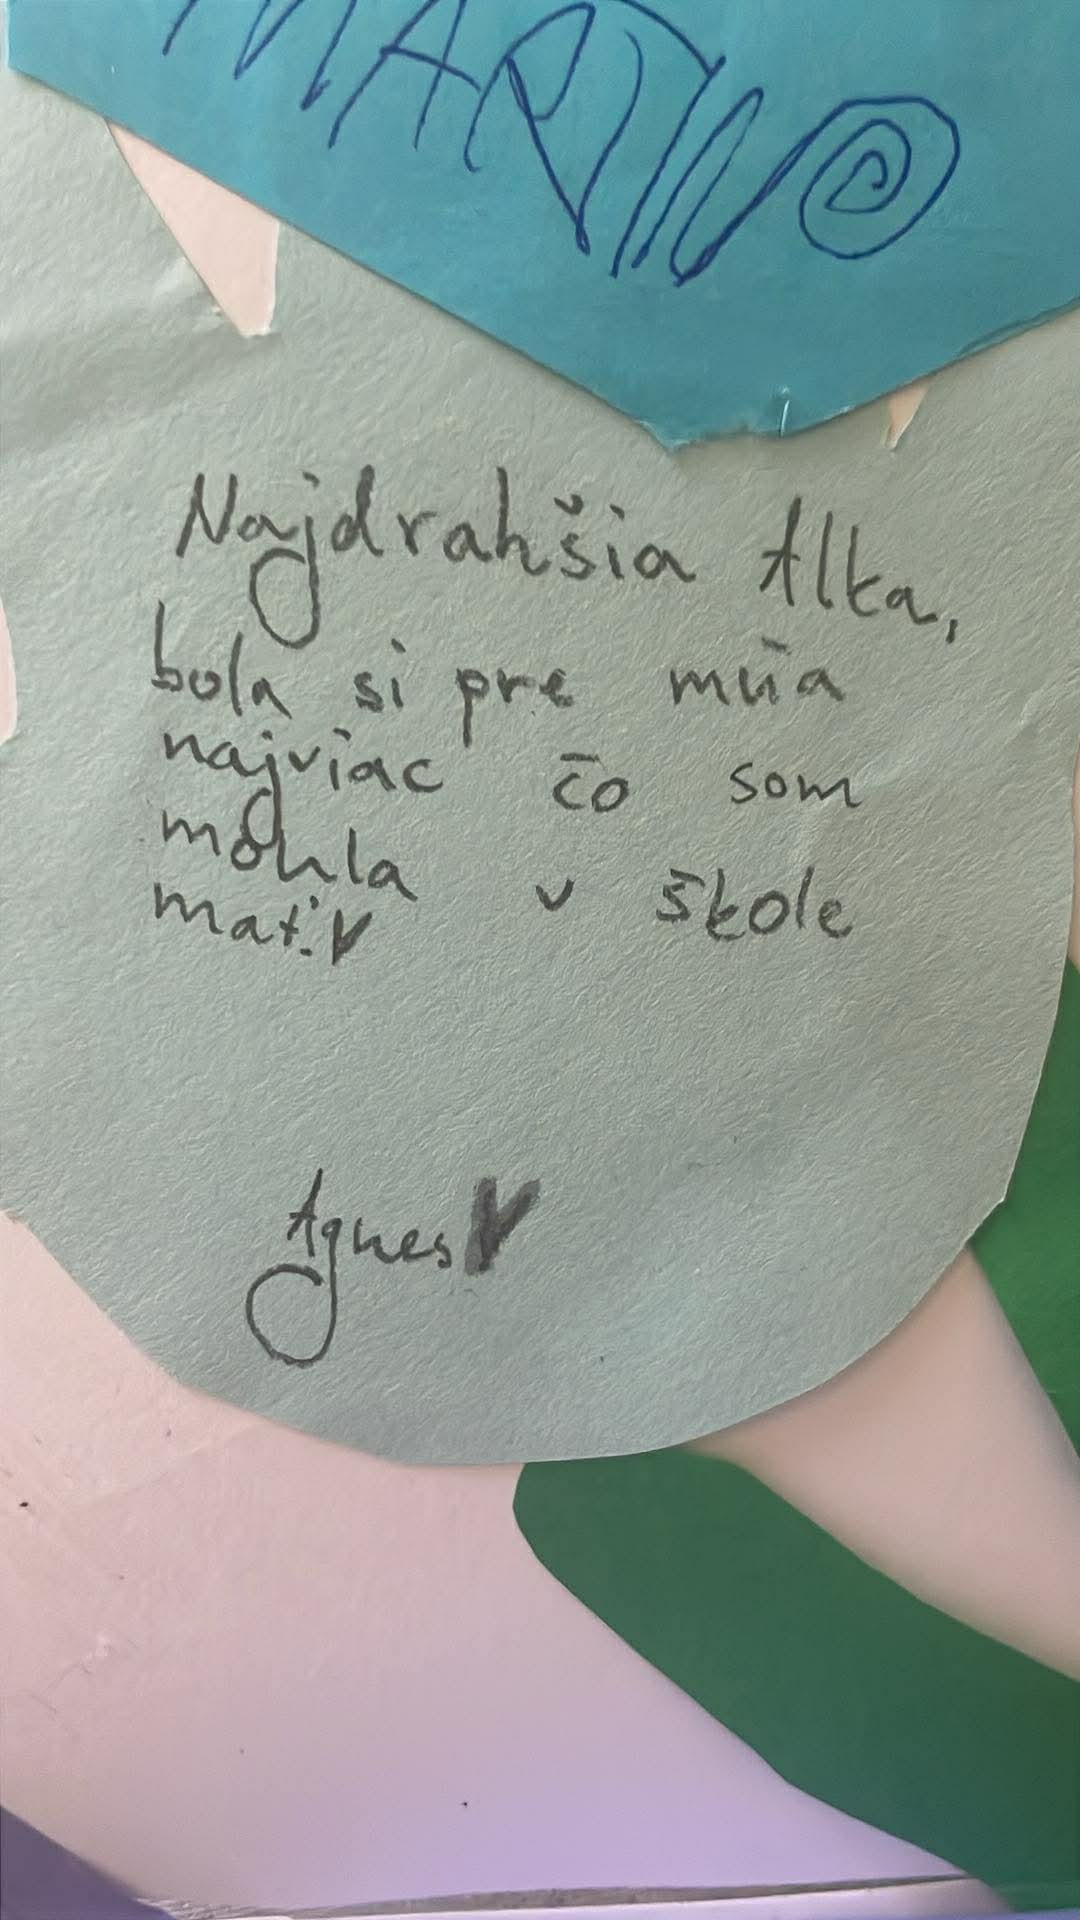 MARTIN
Najdrahšia Alka,
bola si pre mňa
najviac čo som
mohla v škole
mať.♥
Agnes♥